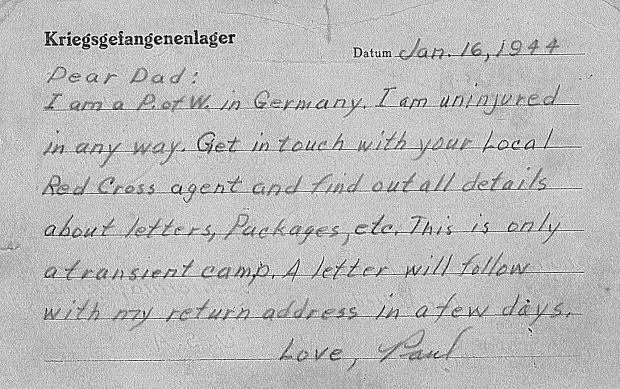 Kriegsgefangenenlager
Datum Jan. 16, 1944
Dear Dad:
I am a P. of W. in Germany. I am uninjured
in any way. Get in touch with your Local
Red Cross agent and find out all details
about letters, Packages, etc. This is only
a transient camp. A letter will follow
with my return address in a few days.
Love, Paul